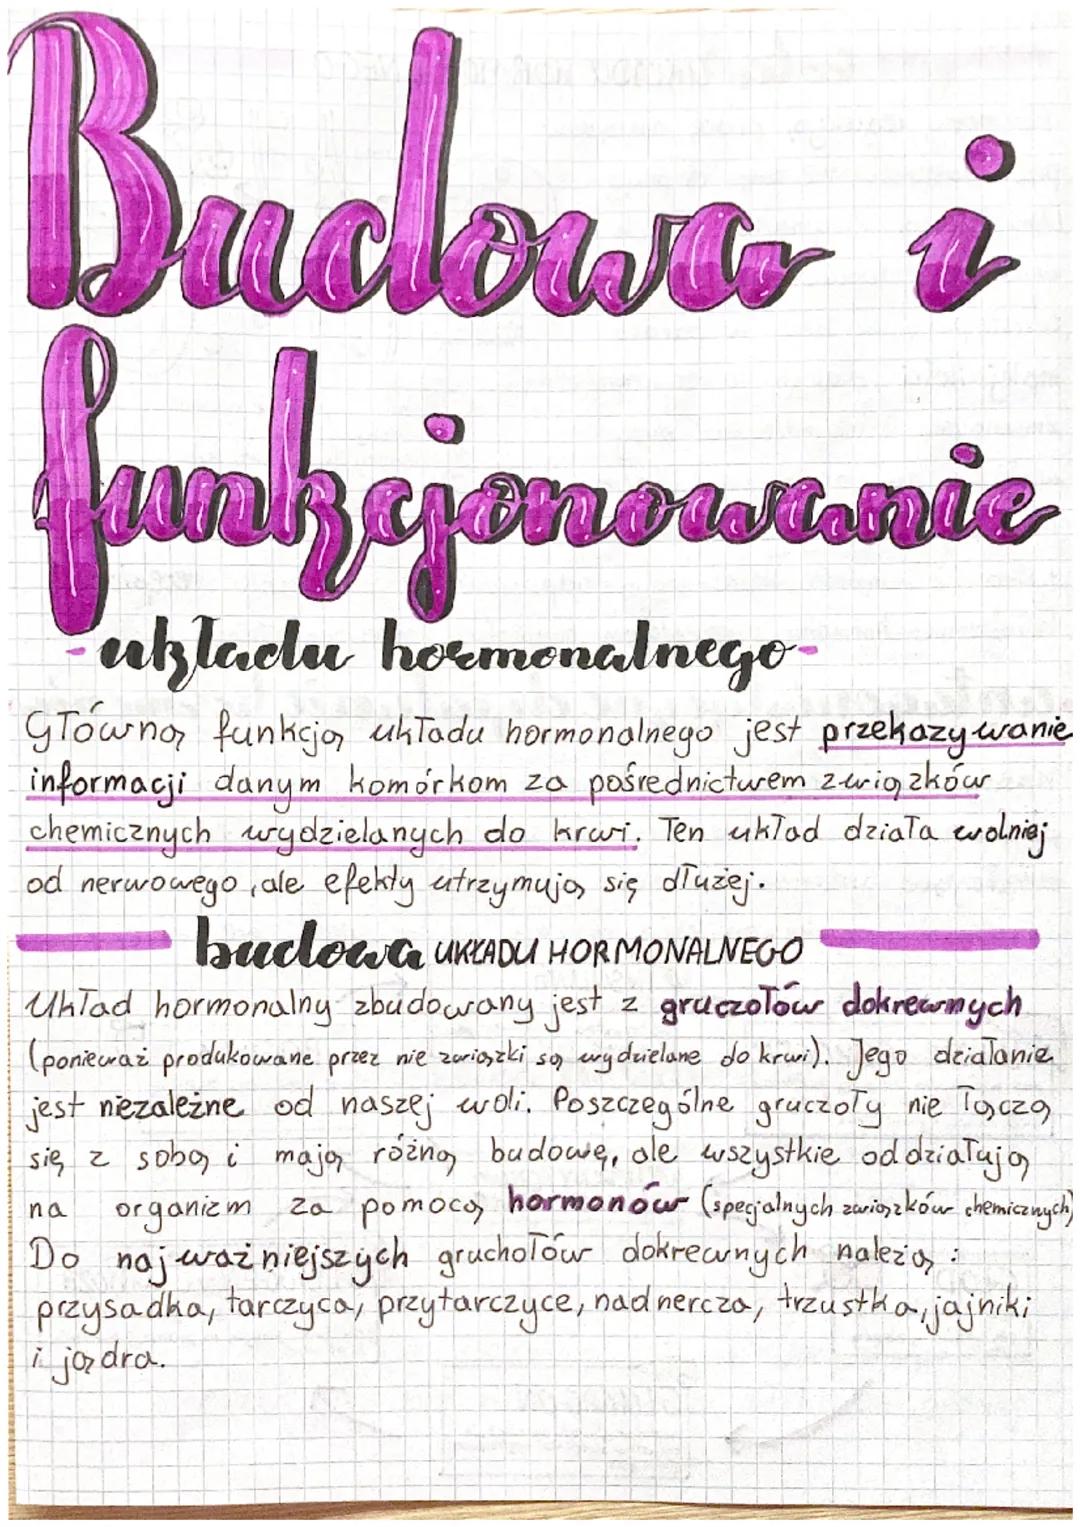 Budowa i
funkcjonowanie
- układu hormonalnego -
Główną funkcją układu hormonalnego jest przekazywanie
informacji danym komórkom za pośrednictwem związków
chemicznych wydzielanych do krwi. Ten układ działa wolniej
od nerwowego, ale efekty utrzymują się dłużej.
budowa UKŁADU HORMONALNEGO
Układ hormonalny zbudowany jest z gruczołów dokrewnych
(ponieważ produkowane przez nie związki są wydzielane do krwi). Jego działanie
jest niezależne od naszej woli. Poszczególne gruczoły nie łączą
się z sobą i mają różną budowę, ale wszystkie oddziałują
na organizm za pomocą hormonów (specjalnych związków chemicznych)
Do najważniejszych gruchołów dokrewnych należą :
przysadka, tarczyca, przytarczyce, nadnercza, trzustka, jajniki
i jądra.